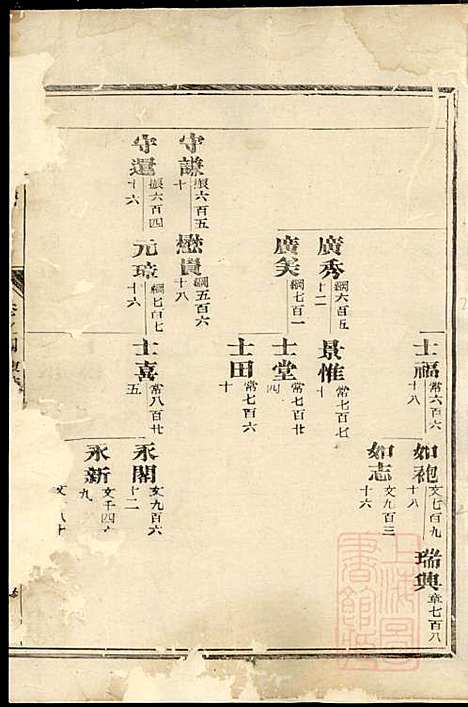 士福 常六百六十八
如袍 文七百九十八
瑞興 章七百八
如志 文九百三十六
廣秀 綱六百五十二
景惟 常七百七十
廣美 綱七百一
士堂 常七百廿四
士田 常七百六十
守謙 振六百五十
懋貴 綱五百六十八
守還 振六百四十六
元璋 綱七百七十六
士喜 常八百廿五
永閣 文九百六十二
永新 文千四百九
上海圖書館藏